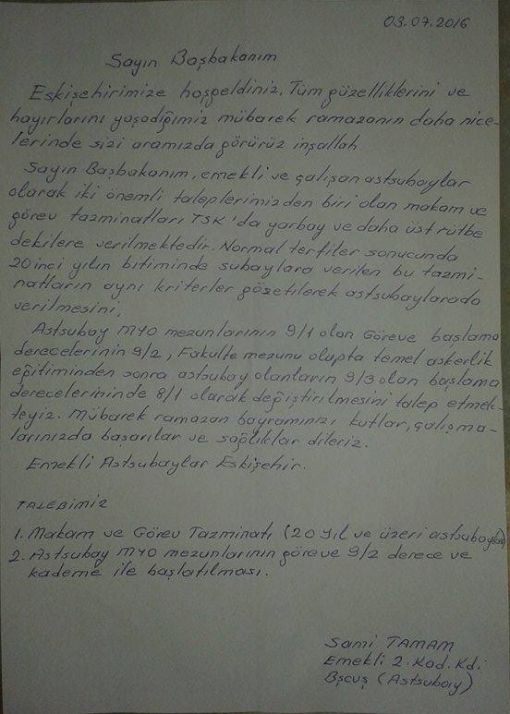 03.07.2016
Sayın Başbakanım
Eskişehirimize hoşgeldiniz. Tüm güzelliklerini ve
hayırlarını yaşadığımız mübarek ramazanın daha nice-
lerinde sizi aramızda görürüz inşallah.
Sayın Başbakanım, emekli ve çalışan astsubaylar
olarak iki önemli taleplerimizden biri olan makam ve
görev tazminatları TSK'da yarbay ve daha üst rütbe
dekilere verilmektedir. Normal terfiler sonucunda
20 inci yılın bitiminde subaylara verilen bu tazmi-
natların aynı kriterler gözetilerek astsubaylarada
verilmesini,
Astsubay MYO mezunlarının 9/1 olan Göreve başlama
derecelerinin 9/2, Fakülte mezunu olupta temel askerlik
eğitiminden sonra astsubay olanların 9/3 olan başlama
derecelerininde 8/1 olarak değiştirilmesini talep etmek-
teyiz. Mübarek ramazan bayramınızı kutlar, çalışma-
larınızda başarılar ve sağlıklar dileriz.
Emekli Astsubaylar Eskişehir.
TALEBİMİZ
1. Makam ve Görev Tazminatı (20 yıl ve üzeri astsubaylara)
2. Astsubay MYO mezunlarının göreve 9/2 derece ve
kademe ile başlatılması.
Sami TAMAM
Emekli 2. Kad. Kd.
Bşçvş (Astsubay)